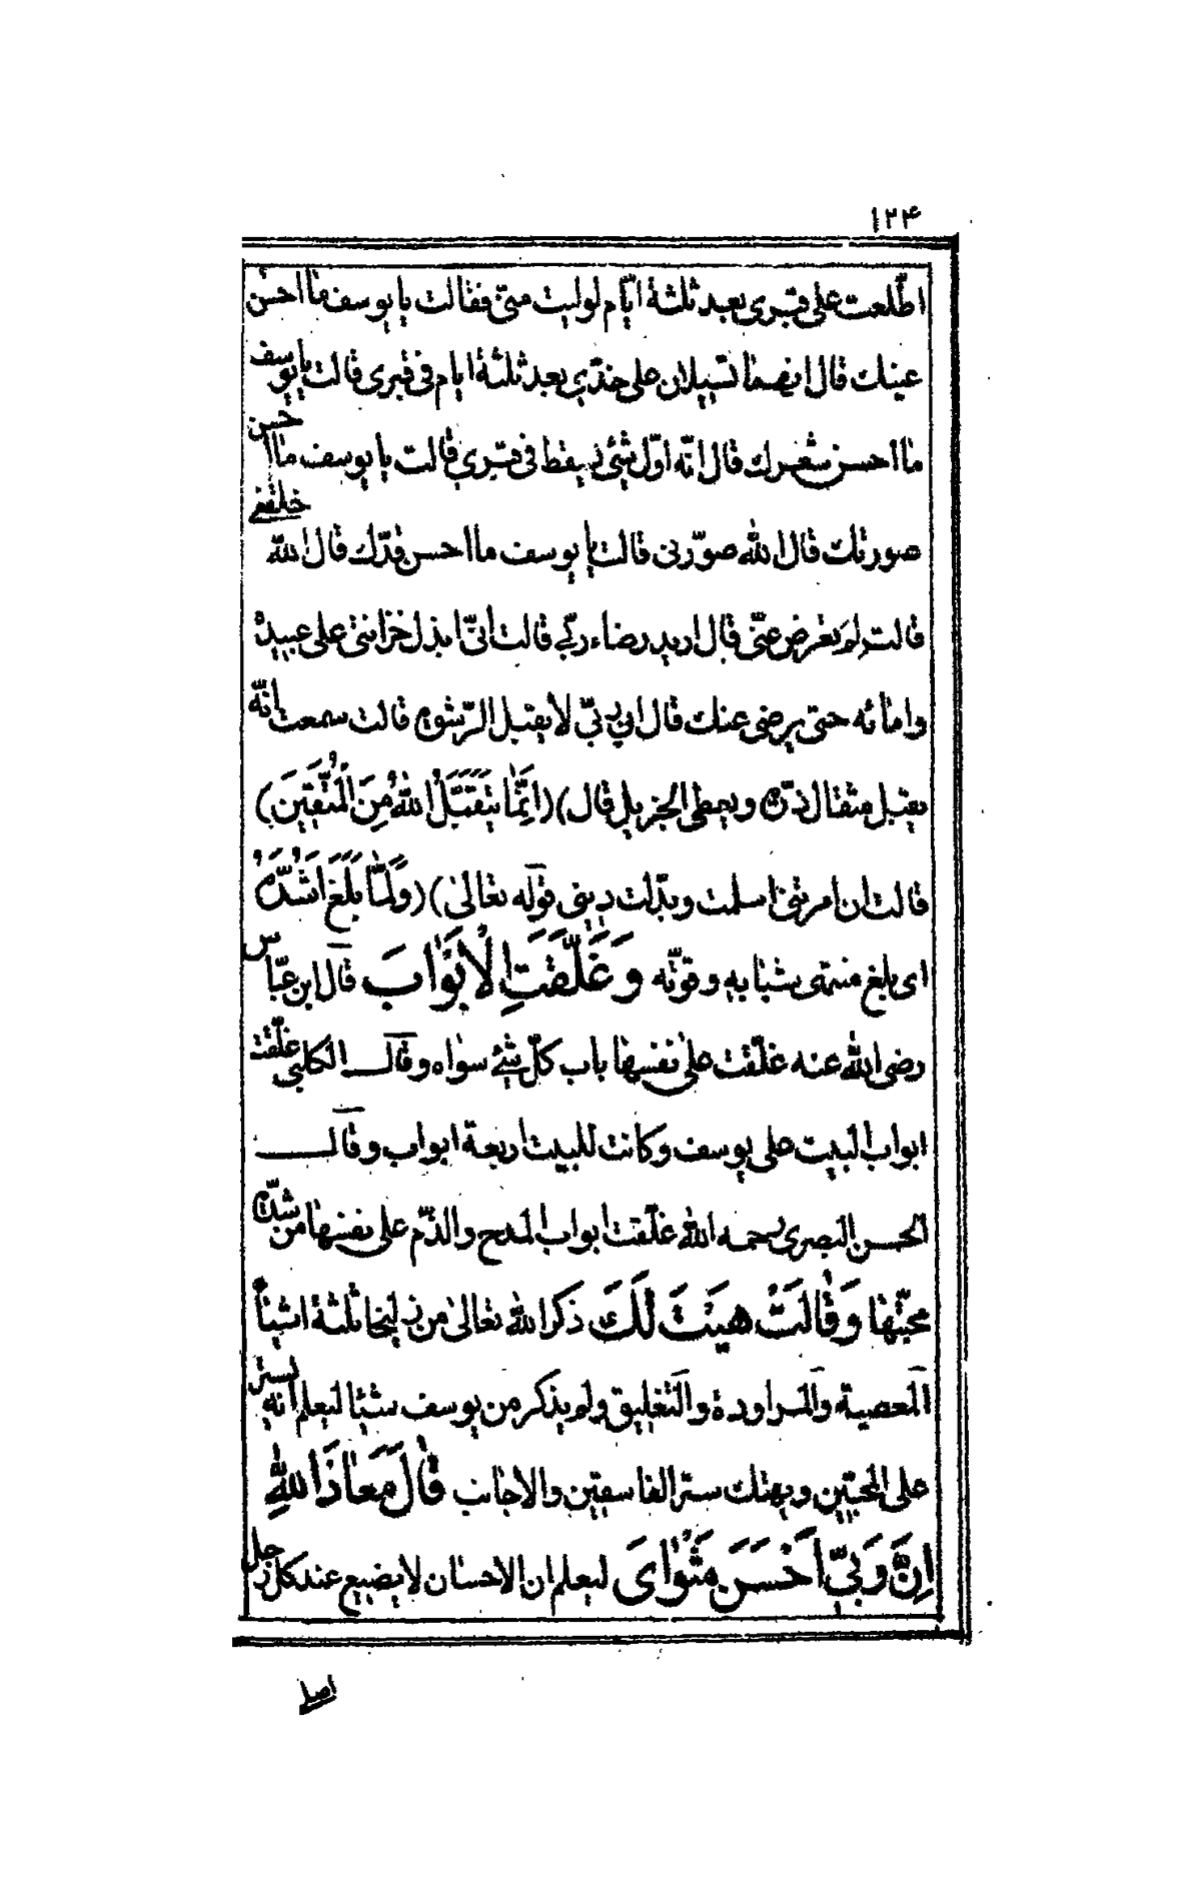 ۱۲۴
اطّلعت على قبرى بعد ثلثة ايّام لوليت منّى فقالت يا يوسف ما احسن
عينك قال انهما تسيلان على خدّى بعد ثلثة ايام فى قبرى قالت يا يوسف
ما احسن شعرك قال انّه اوّل شئ يسقط فى قبرى قالت يا يوسف ما احسن
صورتك قال الله صوّرنى قالت يا يوسف ما احسن قدّك قال الله خلقنى
قالت لم تعرض عنّى قال اريد رضاء ربّى قالت انّى ابذل خزائنى على عبيده
وامائه حتى يرضى عنك قال انّ ربّى لا يقبل الرّشوة قالت سمعت انّه
يقبل مثقال ذرّة ويعطى الجزيل قال) (اِنَّمَا يَتَقَبَّلُ اللهُ مِنَ الْمُتَّقِيْنَ)
قالت ان امرتنى اسلمت وبدّلت دينى قوله تعالىٰ) (وَلَمَّا بَلَغَ اَشُدَّهُ
اى بلغ منتهى شبابه وقوّته وَغَلَّقَتِ الْاَبْوَابَ قال ابن عبّاس
رضى الله عنه غلّقت على نفسها باب كلّ شئ سواه وقال الكلبى غلّقت
ابواب البيت على يوسف وكانت للبيت اربعة ابواب وقال
الحسن البصرى رحمه الله غلّقت ابواب المدح والذّم على نفسها من شدّة
محبّتها وَقَالَتْ هَيْتَ لَكَ ذكر الله تعالىٰ من زليخا ثلثة اشياء
المعصية والمراودة والتغليق ولم يذكر من يوسف شيئا ليعلم انّه يستر
على المحبّين ويهتك ستر الفاسقين والاجانب قَالَ مَعَاذَ اللهِ
اِنَّهُ رَبِّىْ اَحْسَنَ مَثْوَاىَ ليعلم ان الاحسان لا يضيع عند كل رجل
اصل